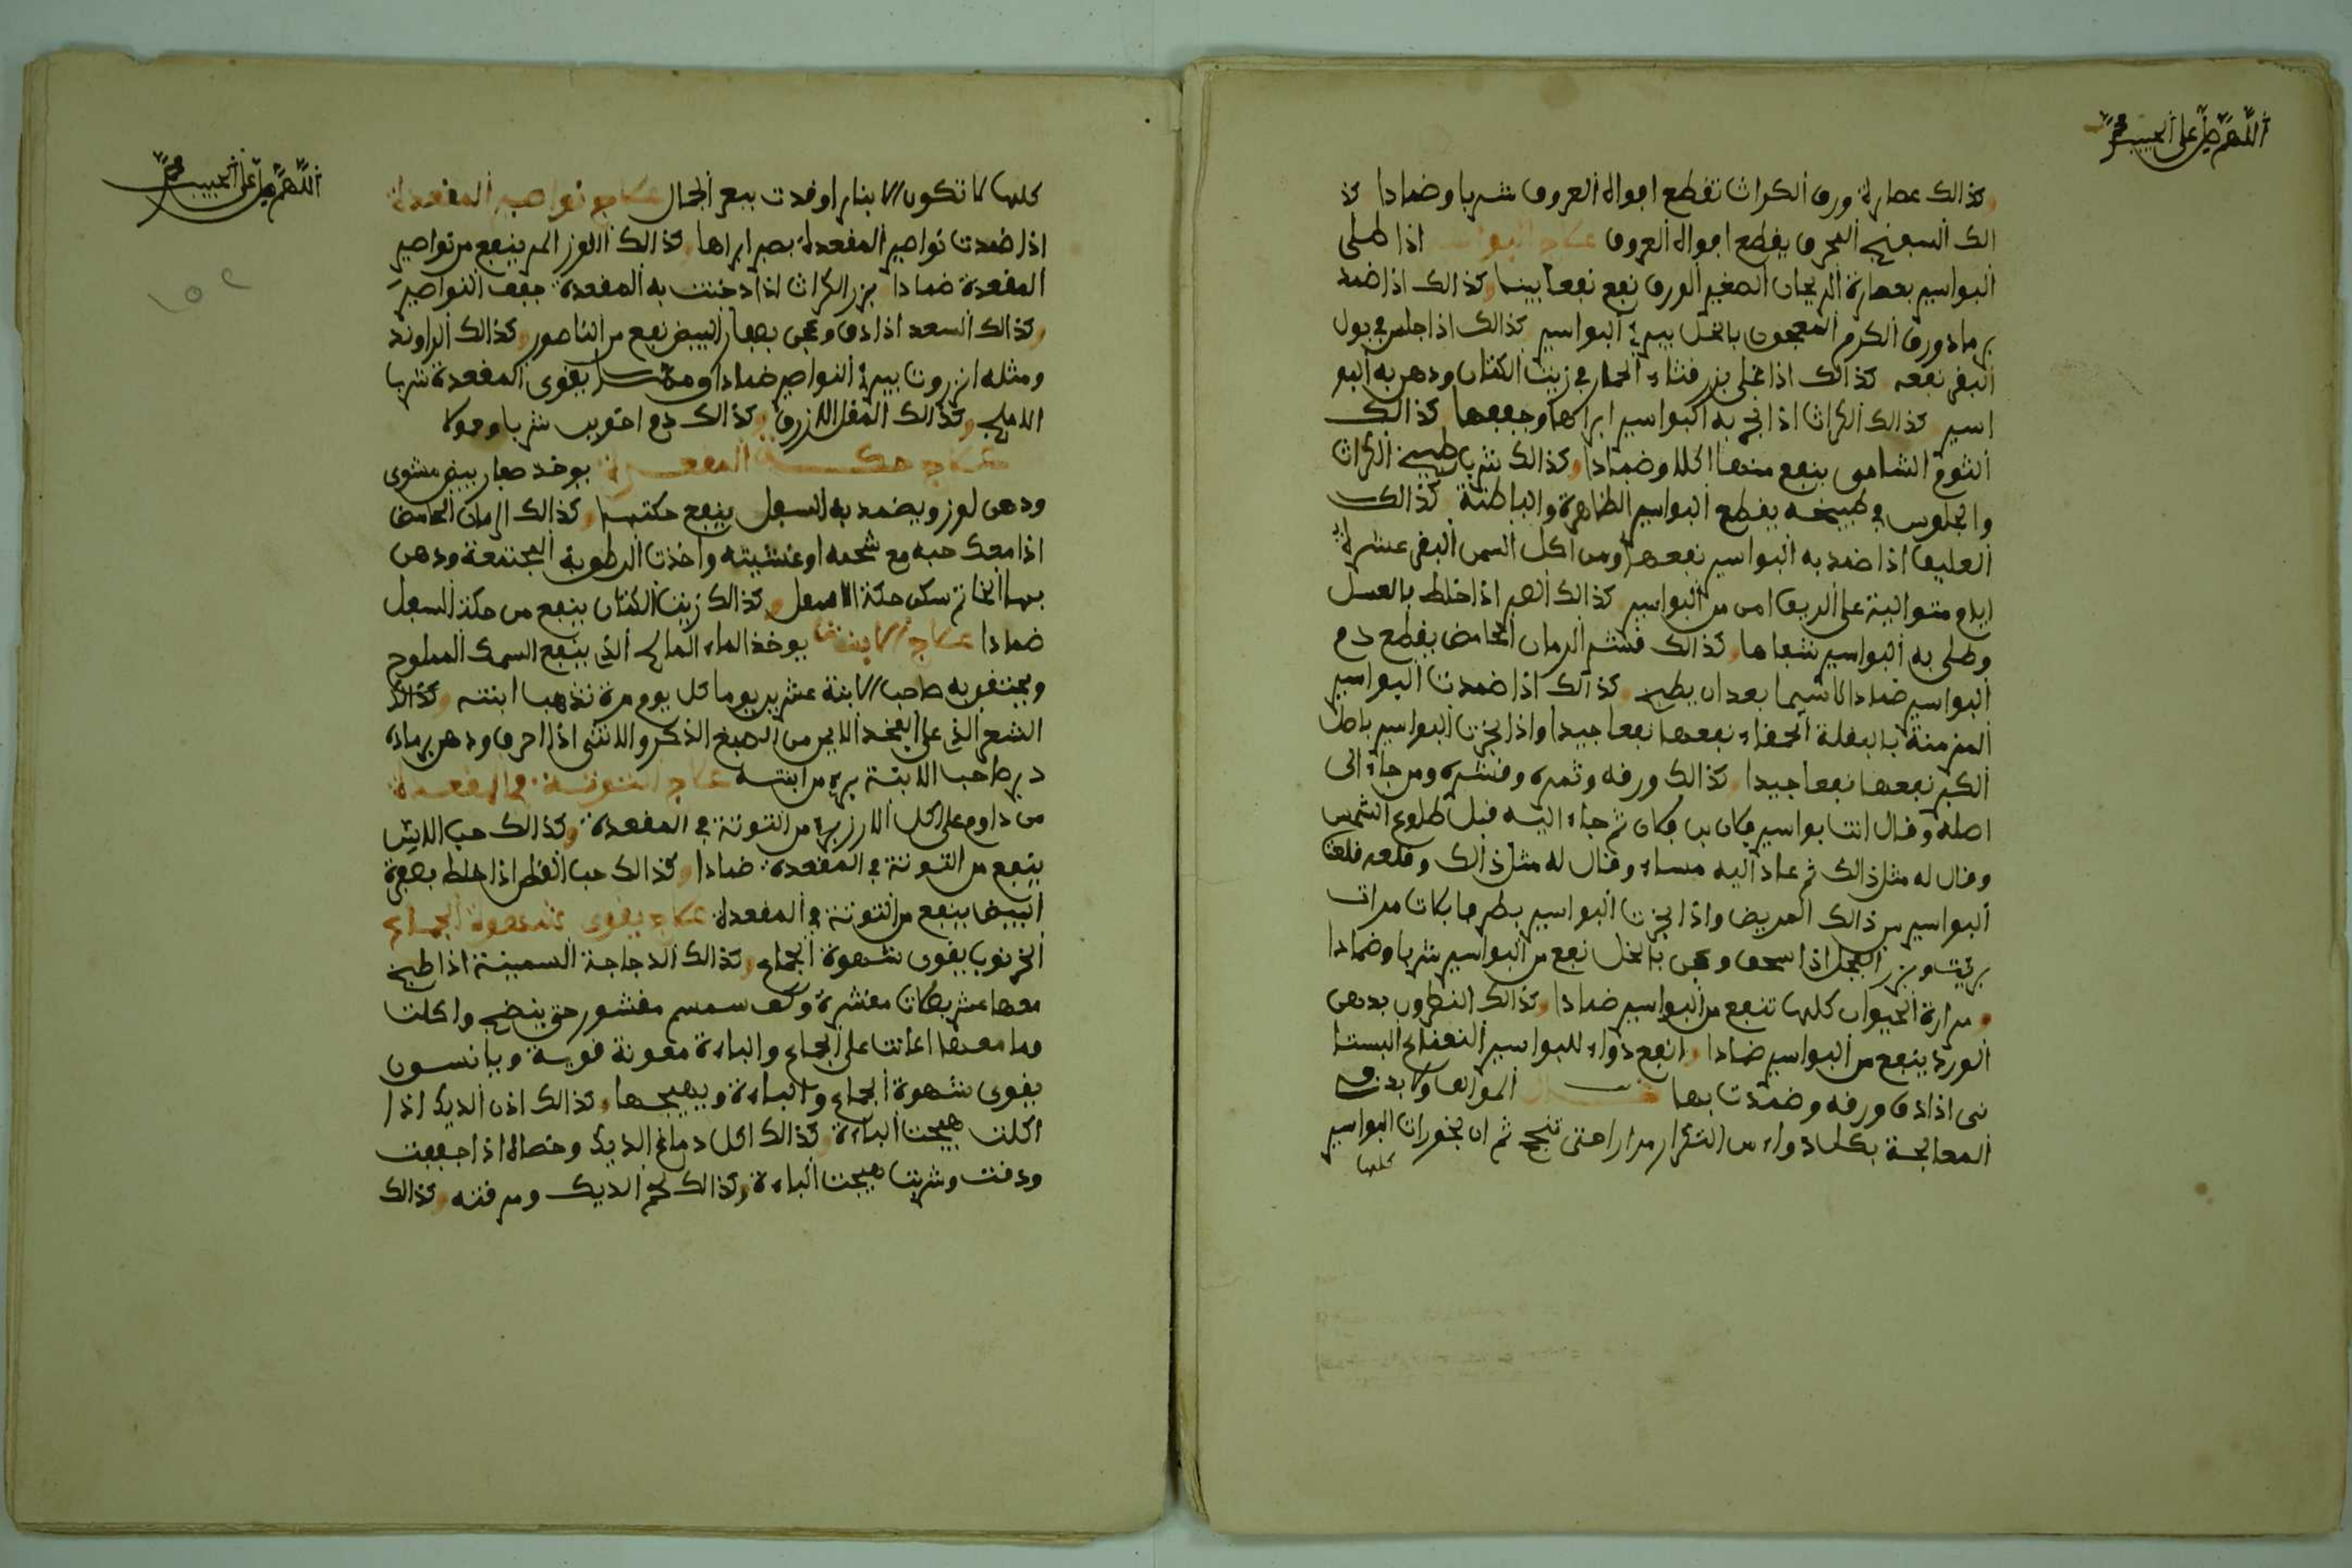 اللهم صل على الحبيب محمد
وكذالك عصارة ورق الكراث تقطع افواه العروق شربا وضمادا كذ
الك السفنج المحرق يقطع افواه العروق علاج البواسر اذا طلى
البواسير بعصارة الريحان الصغير الورق نفع نفعا بينا وكذالك اذا ضمد
برماد ورق الكرم المعجون بالخل يبرئ البواسير كذالك اذا جلس في بول
البقر نفعه كذالك اذا غلى بزر قثاء الحمار في زيت الكتان ودهن به البو
اسير كذالك الكراث اذا بخر به البواسير ابراها وجففها كذالك
الثوم الشامي ينفع منها اكلا وضمادا وكذالك شرب طبيخ الكراث
والجلوس في طبيخه يقطع البواسير الظاهرة والباطنة كذالك
العليق اذا ضمد به البواسير نفعها ومن اكل السمن البقرى عشرة
ايام متوالية على الريق امن من البواسير كذالك الصبر اذا خلط بالعسل
وطلى به البواسير شفاها وكذالك قشر الرمان الحامض يقطع دم
البواسير ضمادا لاسيما بعد ان يطبخ وكذالك اذا ضمدت البواسير
المزمنة بالبقلة الحمقاء نفعها نفعا جيدا واذا بخرت البواسير باصل
الكبر نفعها نفعا جيدا وكذالك ورقه وثمره وقشره ومن جاء الى
اصله وقال انت بواسير فلان بن فلان ثم جاء اليه قبل طلوع الشمس
وقال له مثل ذالك ثم عاد اليه مساء وقال له مثل ذالك وقلعه قلعت
البواسير من ذالك المريض واذا بخرت البواسير بطرفا ثلاث مرات
برئت وبزر الفجل اذا سحق وعجن بالخل نفع من البواسير شربا وضمادا
ومرارة الحيوان كلها تنفع من البواسير ضمادا وكذالك النطرون بدهن
الورد ينفع من البواسير ضمادا وانفع دواء للبواسير النعناع البستا
نى اذا دق ورقه وضمدت بها قال المؤلف ولا بد في
المعالجة بكل دواء من التكرار مرارا حتى تنجح ثم ان بخورات البواسير
كلها
اللهم صل على الحبيب محمد
١٥٢
كلها لا تكون الا بنار اوقدت ببعر الجمال علاج نواصير المقعدة
اذا ضمدت نواصير المقعدة بصبر ابراها وكذالك اللوز المر ينفع من نواصير
المقعدة ضمادا بزر الكراث اذا دخنت به المقعدة جفف النواصير
وكذالك السعد اذا دق وعجن بصفار البيض نفع من الناصور وكذالك الراوند
ومثله انزروت يبرئ النواصير ضمادا يقوى المقعدة شربا
الاملج وكذالك المقل الازرق وكذالك دم اخوين شربا
علاج حكة المقعدة يوخذ صفار بيض مشوى
ودهن لوز ويضمد به السفل ينفع حكتها وكذالك الرمان الحامض
اذا معك حبه مع شحمه او غشيته واخذت الرطوبة المجتمعة ودهن
بها الخاتم سكن حكة الاسفل وكذالك زيت الكتان ينفع من حكة السفل
ضمادا علاج الابنة يوخذ الماء المالح الذي ينقع السمك المملوح
ويحتقن به صاحب الابنة عشرين يوما كل يوم مرة تذهب ابنته وكذالك
الشعر الذي على الفخذ الايمن من الضبع الذكر والانثى اذا احرق ودهن برماده
دبر صاحب الابنة برئ من ابنته علاج التوتة في المقعدة
من داوم على اكل الارز برئ من التوتة في المقعدة وكذالك حب الاس
ينفع من التوتة في المقعدة ضمادا وكذالك حب القطن اذا خلط بصفرة
البيض ينفع من التوتة في المقعدة علاج يقوى شهوة الجماع
الخرنوب يقوى شهوة الجماع وكذالك الدجاجة السمينة اذا طبخ
معها عشر بصلات مقشرة وكف سمسم مقشور حتى ينضج واكلت
وما معها اعانت على الجماع والباءة معونة قوية ويانسون
يقوى شهوة الجماع والباءة ويهيجها وكذالك اذن الديك اذا
اكلت هيجت الباءة وكذالك اكل دماغ الديك وخصاه اذا جففت
ودقت وشربت هيجت الباءة وكذالك لحم الديك ومرقته وكذالك